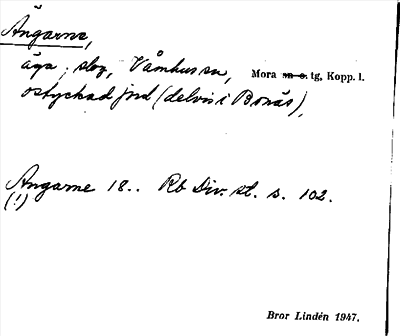 Ängarne,
äga, skog, Våmhus sn, Mora sn o. tg, Kopp. l.
ostyckad jord (delvis i Bonäs),
Ängarne 18.. Rb Div. st. s. 102.
(!)
Bror Lindén 1947.